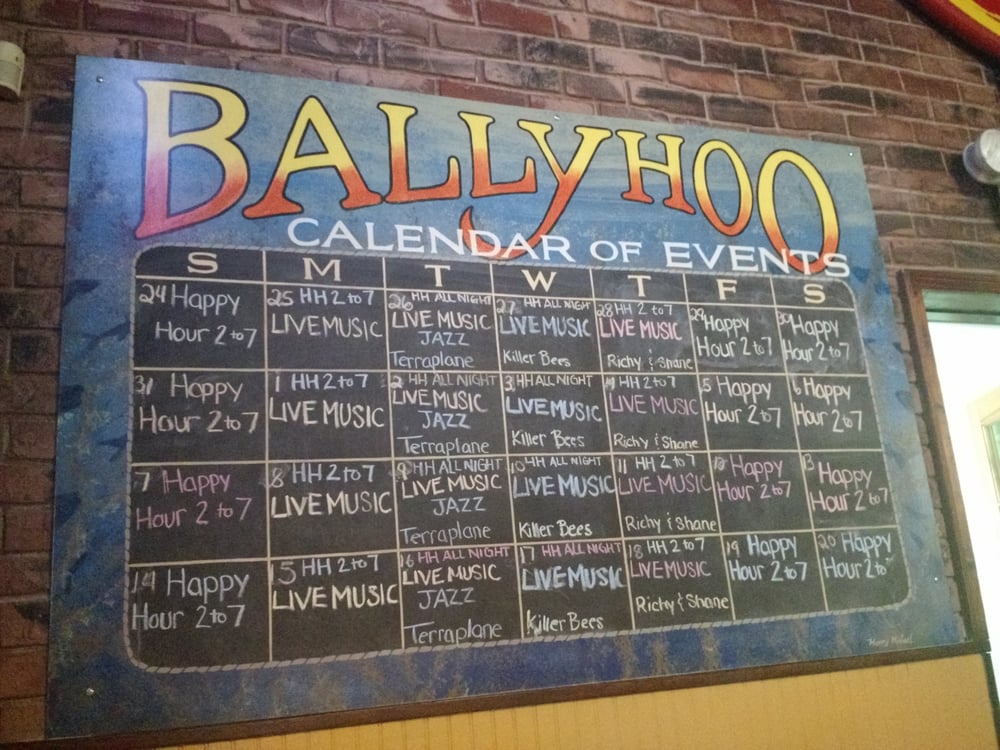 BALLYHOO
CALENDAR OF EVENTS
S M T W T F S
24 Happy
Hour 2 to 7
25 HH 2 to 7
LIVE MUSIC
26 HH ALL NIGHT
LIVE MUSIC
JAZZ
Terraplane
27 HH ALL NIGHT
LIVE MUSIC
Killer Bees
28 HH 2 to 7
LIVE MUSIC
Richy & Shane
29 Happy
Hour 2 to 7
30 Happy
Hour 2 to 7
31 Happy
Hour 2 to 7
1 HH 2 to 7
LIVE MUSIC
2 HH ALL NIGHT
LIVE MUSIC
JAZZ
Terraplane
3 HH ALL NIGHT
LIVE MUSIC
Killer Bees
4 HH 2 to 7
LIVE MUSIC
Richy & Shane
5 Happy
Hour 2 to 7
6 Happy
Hour 2 to 7
7 Happy
Hour 2 to 7
8 HH 2 to 7
LIVE MUSIC
9 HH ALL NIGHT
LIVE MUSIC
JAZZ
Terraplane
10 HH ALL NIGHT
LIVE MUSIC
Killer Bees
11 HH 2 to 7
LIVE MUSIC
Richy & Shane
12 Happy
Hour 2 to 7
13 Happy
Hour 2 to 7
14 Happy
Hour 2 to 7
15 HH 2 to 7
LIVE MUSIC
16 HH ALL NIGHT
LIVE MUSIC
JAZZ
Terraplane
17 HH ALL NIGHT
LIVE MUSIC
Killer Bees
18 HH 2 to 7
LIVE MUSIC
Richy & Shane
19 Happy
Hour 2 to 7
20 Happy
Hour 2 to